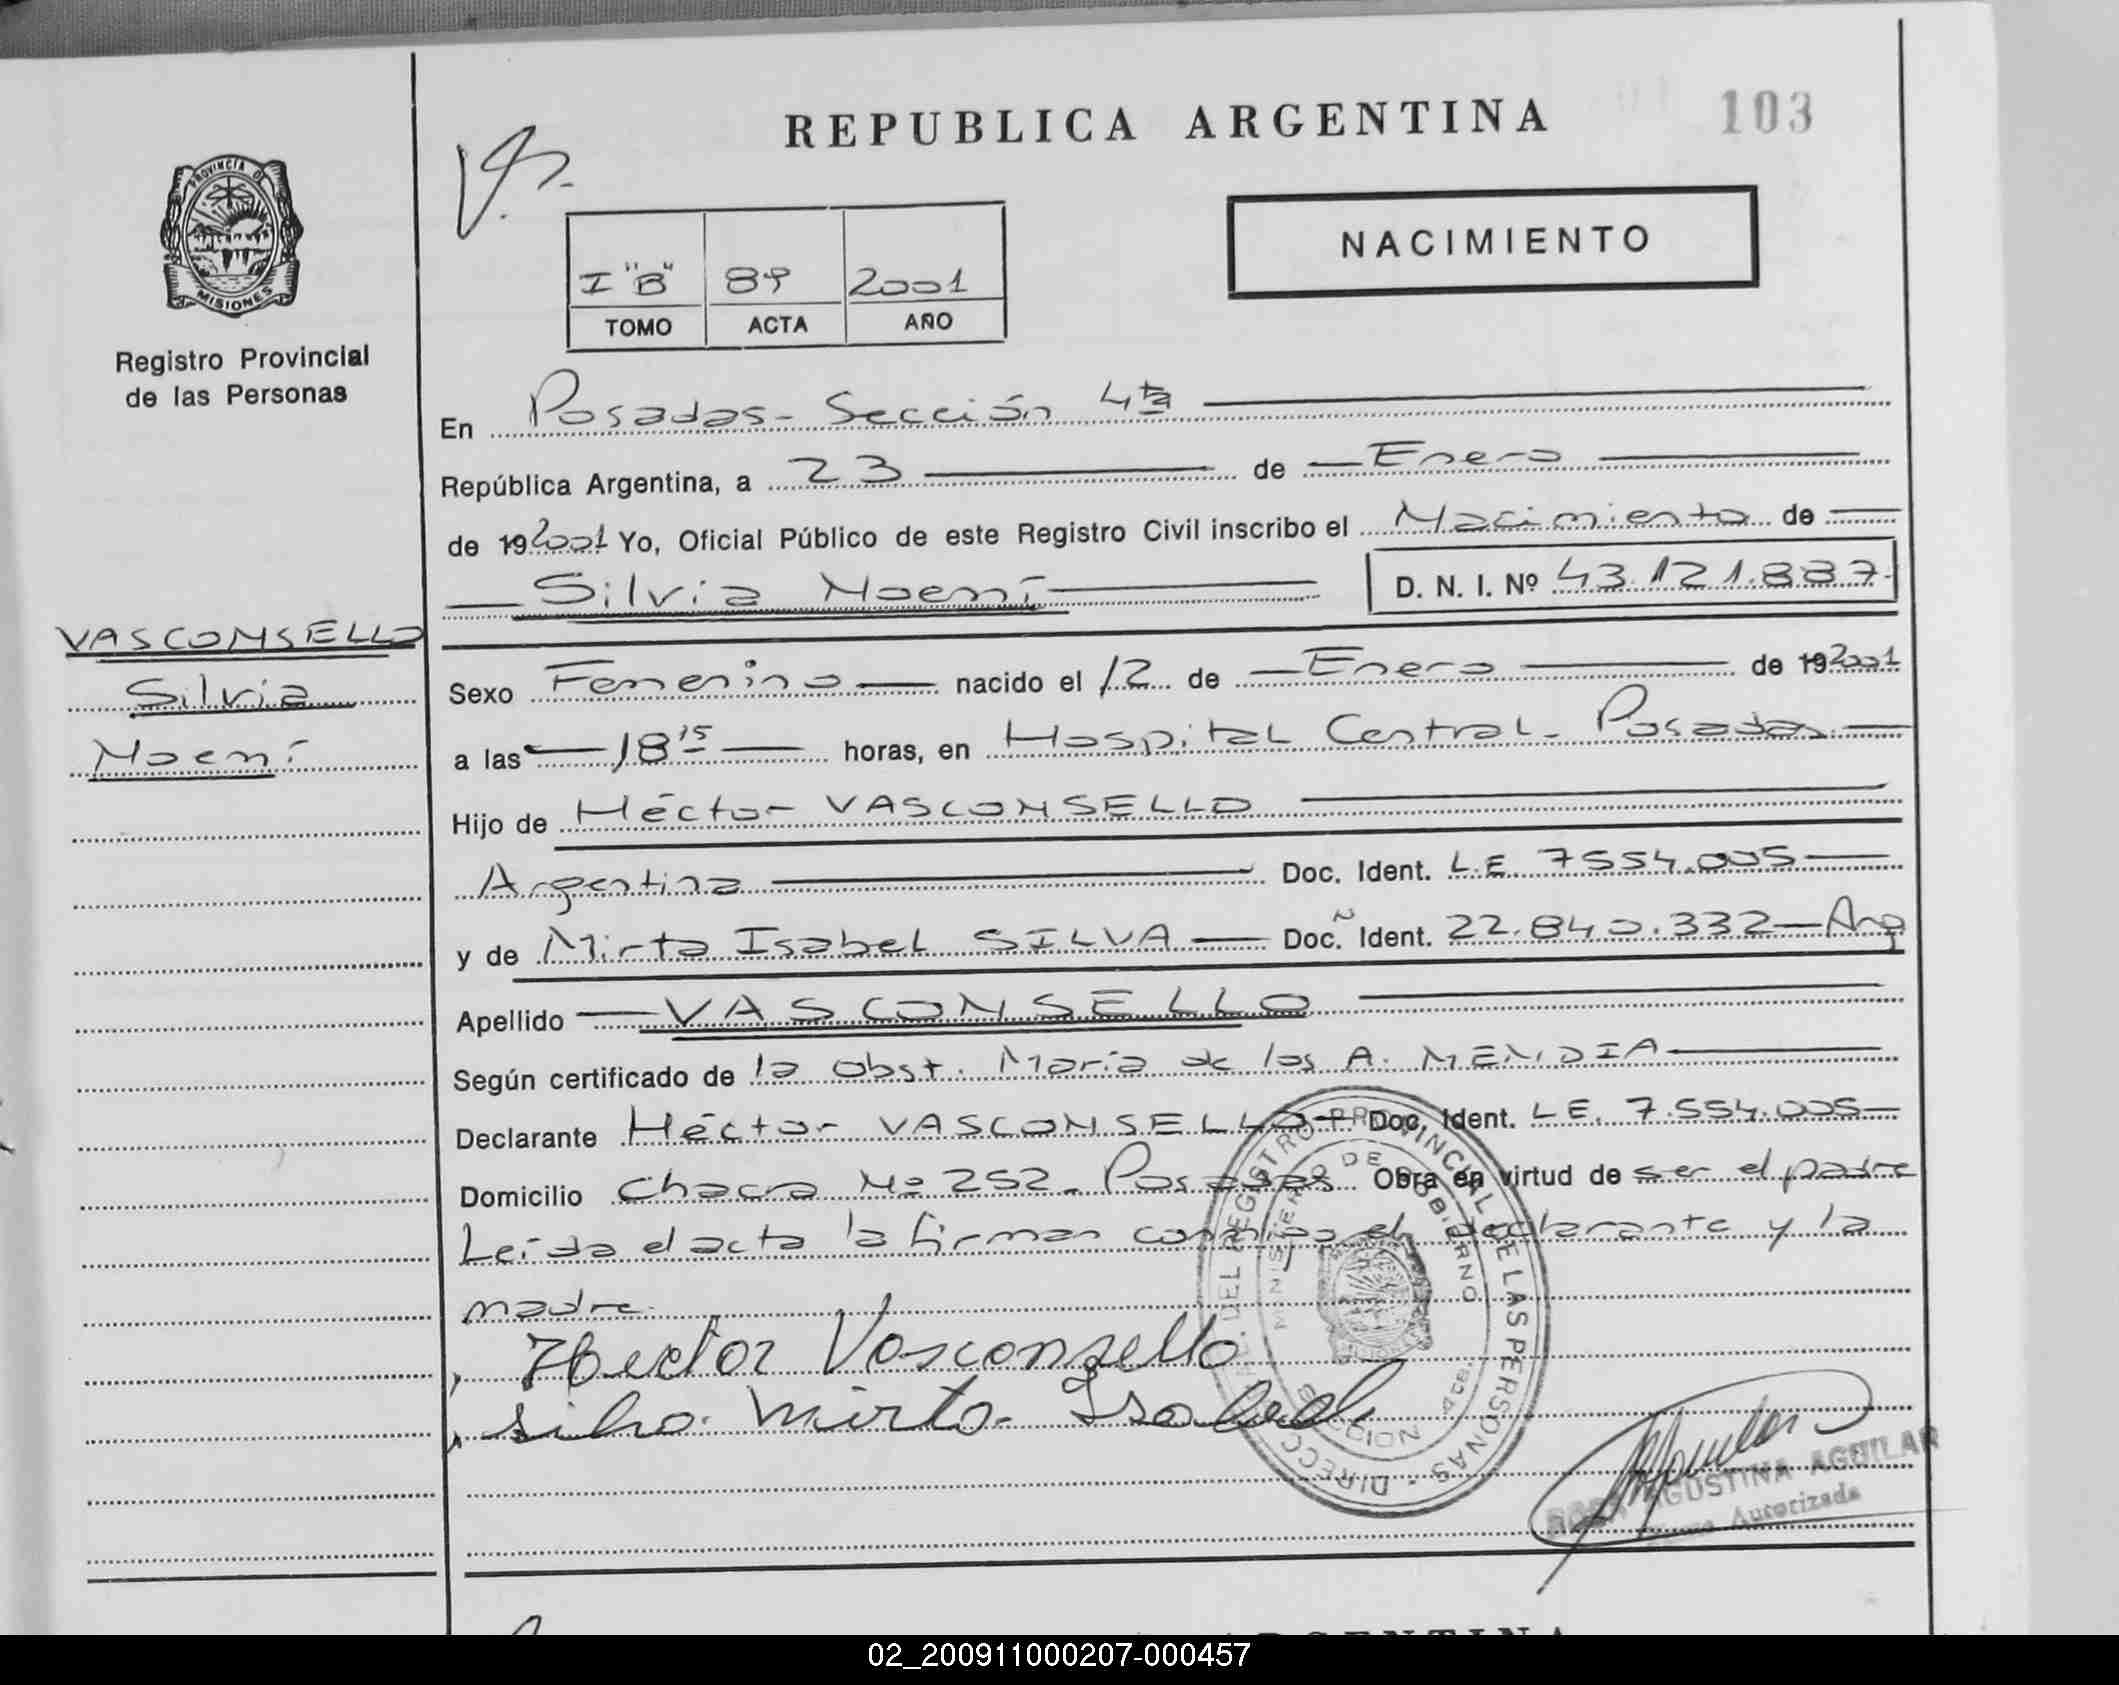 REPUBLICA ARGENTINA
103
PROVINCIA DE
MISIONES
Registro Provincial
de las Personas
NACIMIENTO
I "B" 89 2001
TOMO ACTA AÑO
En Posadas - Sección 4ta
República Argentina, a 23 de Enero
de 192001 Yo, Oficial Público de este Registro Civil inscribo el Nacimiento de
Silvia Noemí D. N. I. Nº 43.121.887
VASCONSELLO
Silvia
Noemí
Sexo Femenino nacido el 12 de Enero de 192001
a las 18 15 horas, en Hospital Central - Posadas
Hijo de Héctor VASCONSELLO
Argentina Doc. Ident. L.E. 7554.005
y de Mirta Isabel SILVA Doc. Ident. 22.840.332 - Arg
Apellido VASCONSELLO
Según certificado de la obst. María de los A. MENDIA
Declarante Héctor VASCONSELLO Doc. Ident. L E. 7.554.005
Domicilio Chacra Nº 252 - Posadas Obra en virtud de ser el padre
Leída el acta la firman conmigo el declarante y la
madre.
Hector Vasconsello
Silva Mirta Isabel
DIRECC. DEL REGISTRO PROVINCIAL DE LAS PERSONAS
MINISTERIO DE GOBIERNO
AGUSTINA AGUILAR
Autorizada
ARGENTINA
02_200911000207-000457